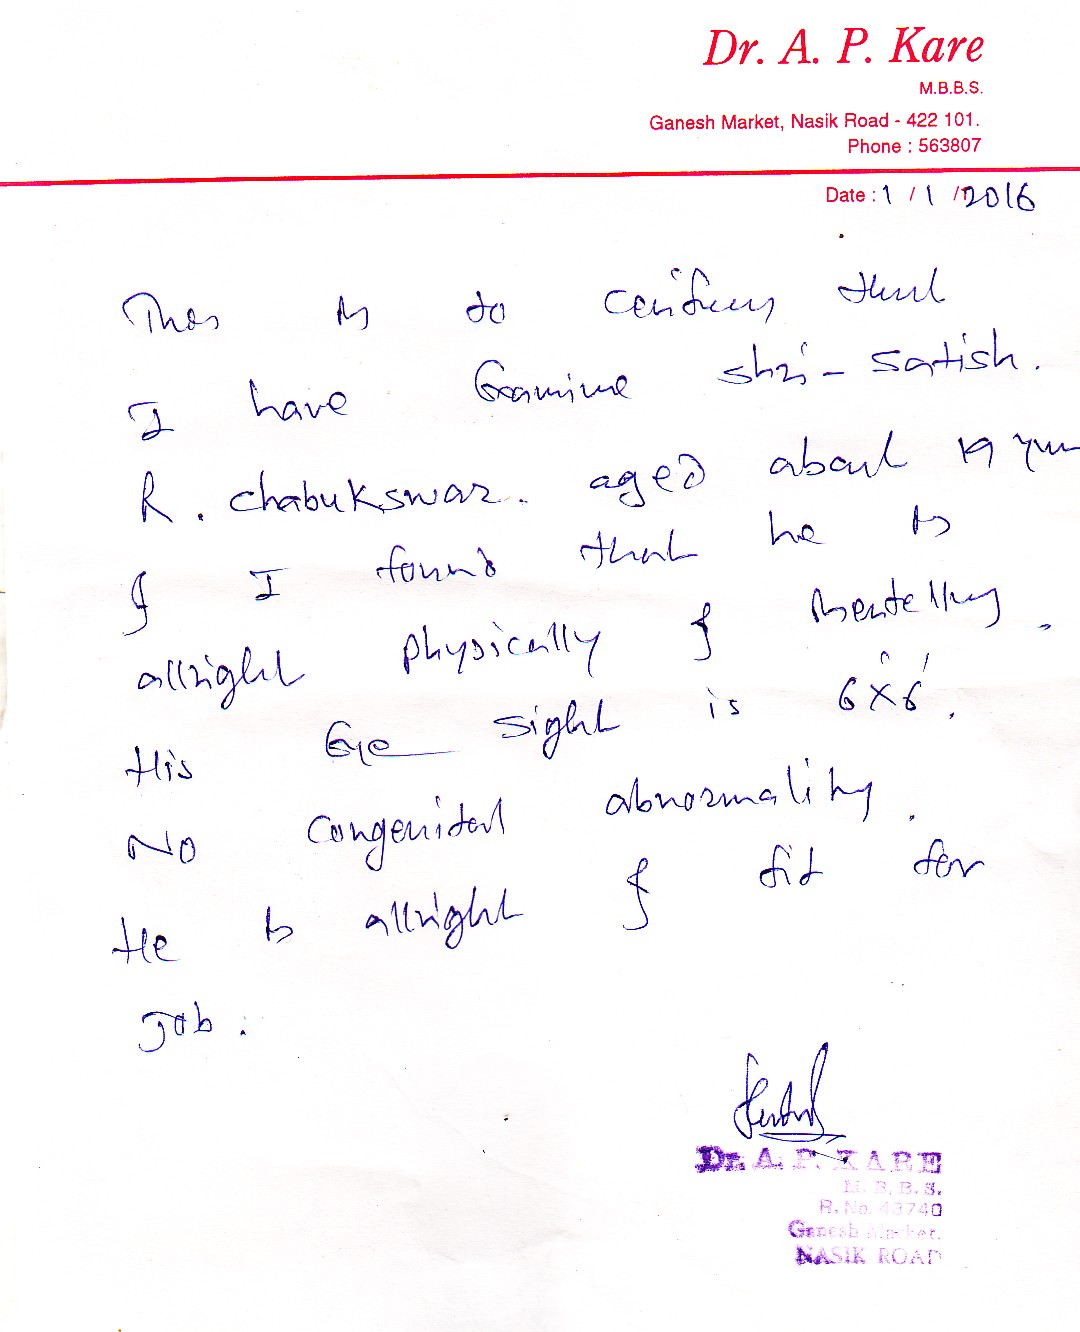 Dr. A. P. Kare
M.B.B.S.
Ganesh Market, Nasik Road - 422 101.
Phone : 563807
Date : 1 / 1 /2016
This is to certify that
I have Examine shri - satish.
R. chabukswar. aged about 19 year
& I found that he is
allright physically & mentelly.
His Eye sight is 6'x6'.
No congenital abnormality.
He is allright & fit for
Job.
Dr. A. P. KARE
M. B. B. S.
R. No. 43740
Ganesh Market.
NASIK ROAD